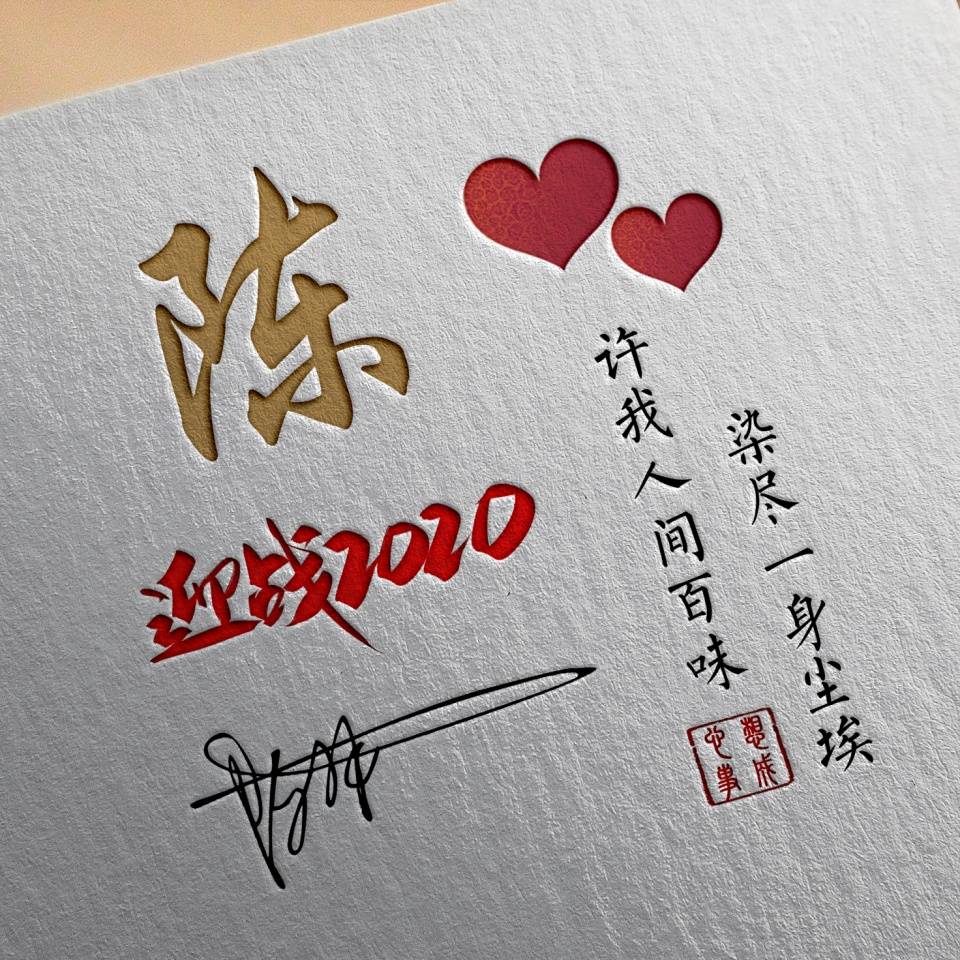 陈
迎战2020
染尽一身尘埃
许我人间百味
心想事成